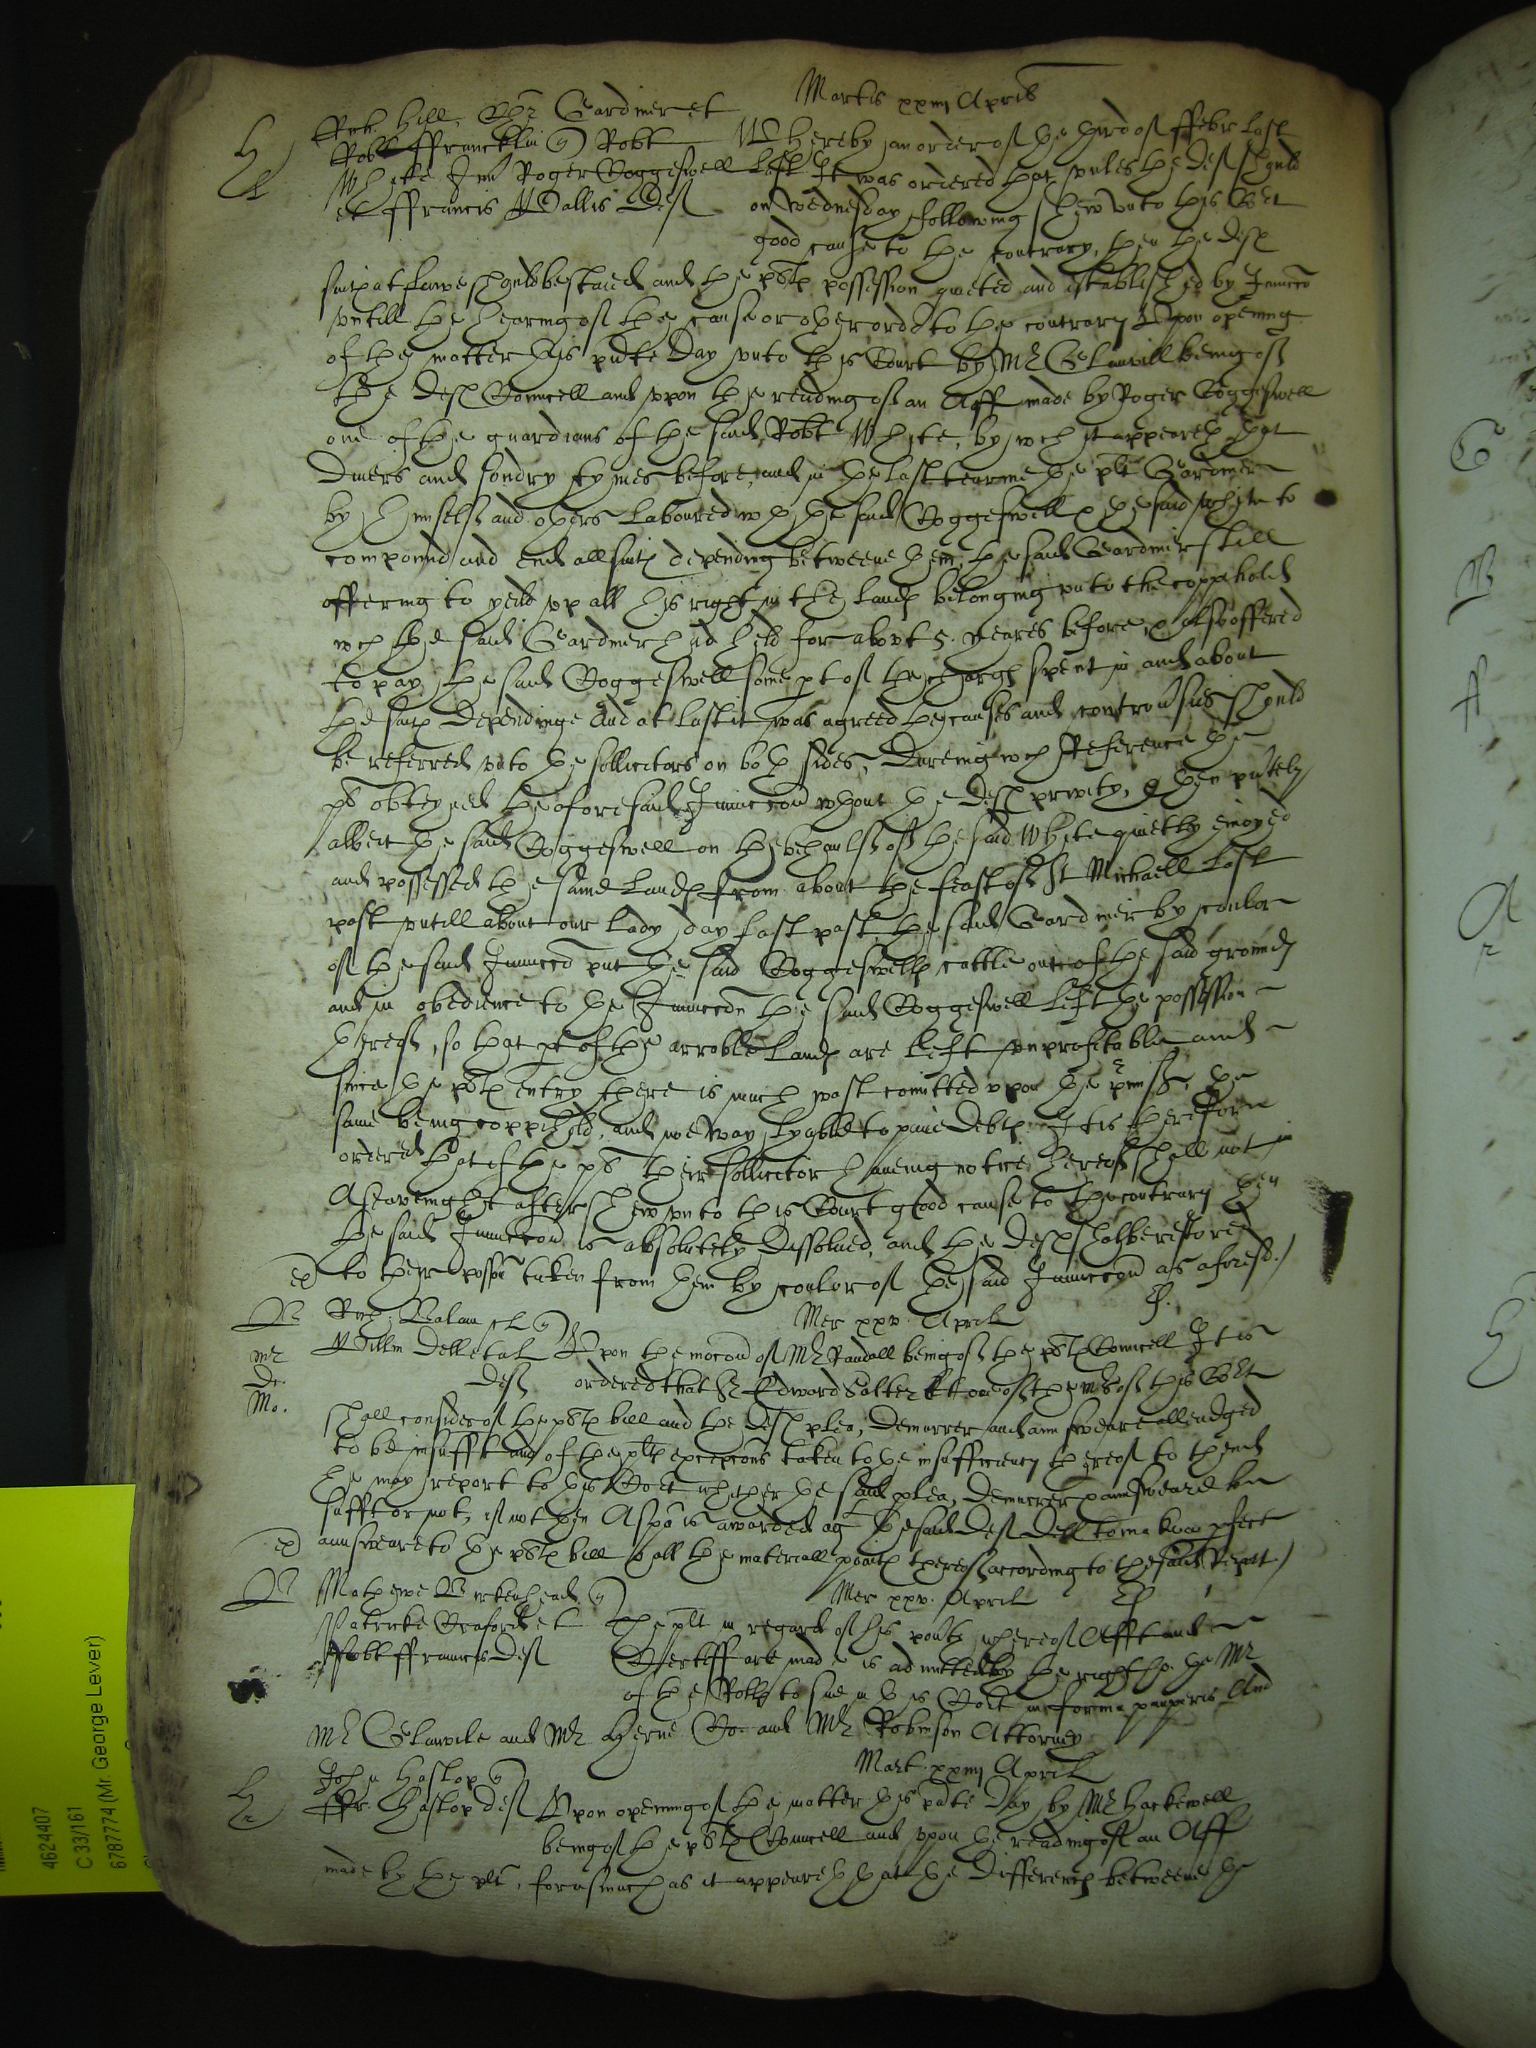 Martis xxiiij Aprilis
Rich. Hill, Gardiner et
Robt ffrancklin q Robt Whereby an order of the third of ffebr last
Whyte Inf Roger Coggeswell It was ordered that vnles the def should
et ffrancis Wallis Def on Wednesday following shew vnto this Cort
good cause to the contrary, then the defts
suite at lawe should be staied and the plts possession quieted and established by Iniuccon
vntill the hearing of the cause or other order to the contrary Vpon opening
of the matter this pnte day vnto this Court by Mr Glanvill being of
the defts Councell and vpon the reading of an Aff made by Roger Coggeswell
one of the guardians of the said Robt Whyte, by wch it appeareth that
divers and sondry tymes before, and in the last tearme the plt Gardiner
by himself and others laboured wth the said Coggeswell & the said Whyte to
compound and end all suits depending betweene them, the said Gardiner still
offering to yeild vp all his right in the lands belonging vnto the coppihold
wch the said Gardiner had held for about 5. yeares before, & also offered
to pay the said Coggeswell some pt of the chargs spent in and about
the suits dependinge And at last it was agreed the causes and controusies should
be referred vnto the sollicitors on both sides, during wch Reference the
pls obteyned the aforesaid Iniuccon wthout the defts privity,
albeit the said Coggeswell on the behaulf of the said Whyte quietly enioyed
and possessed the same lands from about the feast of St Michaell last
past vntill about our Lady day last past the said Gardiner by coulor
of the said Iniuccon put the said Coggeswells cattle out of the said grounds
and in obedience to the Iniuccon the said Coggeswell left the possession
thereof, so that pt of the arrable lands are left vnprofitable and
since the plts entry there is much wast comitted vpon the pmiss, the
same being coppihold, and noe way lyable to paie debts. It is therefore
ordered that if the pls their sollicitor haueing notice hereof shall not in
A seavenight after shew vnto this Court good cause to the contrary then
the said Iniuccon is absolutely dissolued, and the defts shalbe restored
ex to their possion taken from them by coulor of the said Iniuccon as aforesd.
Mer xxv April
Willm Dell et al Vpon the mocon of Mr Randall being of the plts Councell It is
def ordered that Sr Edward Salter kt one of the mrs of this Cort
mr
De.
Mo.
shall consider of the plts bill and the defts plea, demurrer and answeare alleadged
to be insufft and of the plts excepcons taken to the insufficiency thereof to thend
he may report to this Cort whether the said plea, demurrer & answeare be
sufft or not, if not then A spa is awarded agt the said def Dell to make a pfect
ex answeare to the plts bill & all the materiall points thereof according to the said Report
Mathewe Birkenhead q Mer xxv. April
Patricke Craford et The plt in regard of his pouty whereof Afft and
Robt ffrancis Def Certiff are made is admitted by the right ho. the Mr
of the Rolls to sue in this Cort in forma pauperis And
Mr Glanvile and Mr Herne Co. and Mr Robinson Attorney
John Haslop q Mart xxiiij April
ffr. Haslop def Vpon opening of the matter this pnte day by Mr Hackewell
being of the plts Councell and vpon the reading of an Aff
made by the plt, forasmuch as it appeareth that the differencs betweene the
4624407
C 33/161
6787774 (Mr. George Lever)